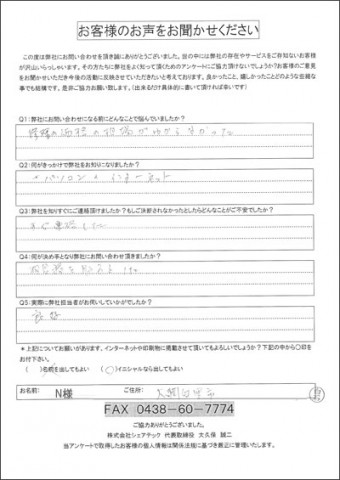 お客様のお声をお聞かせください
この度は弊社にお問い合わせを頂き誠にありがとうございました。世の中には弊社の存在やサービスをご存知ないお客様
が沢山いらっしゃいます。その方たちに弊社をよく知って頂くためのアンケートにご協力頂けないでしょうか?お客様のご意見
をお聞かせいただき今後の活動に反映させていただきたいと考えております。良かったこと、嬉しかったことどのような些細な
事でも結構です。是非ご協力お願い致します。(出来るだけ具体的に書いて頂ければ幸いです)
Q1:弊社にお問い合わせになる前にどんなことで悩んでいましたか?
Q2:何がきっかけで弊社をお知りになりましたか?
パソコン インターネット
Q3:弊社を知りすぐにご連絡頂けましたか?もしご決断されなかったとしたらどんなことがご不安でしたか?
Q4:何が決め手となり弊社にお問い合わせ頂きましたか?
Q5:実際に弊社担当者がお伺いしていかがでしたか?
良好
*上記についてお願いがあります。インターネットや印刷物に掲載させて頂いてもよろしいでしょうか?下記の中から○印を
お付け下さい。
( )名前を出してもよい (○)イニシャルなら出してもよい
お名前: N様 ご住所: 大網白里市
FAX 0438-60-7774
ご協力ありがとうございました。
株式会社シェアテック 代表取締役 大久保 誠二
当アンケートで取得したお客様の個人情報は関係法規に基づき厳正に管理いたします。